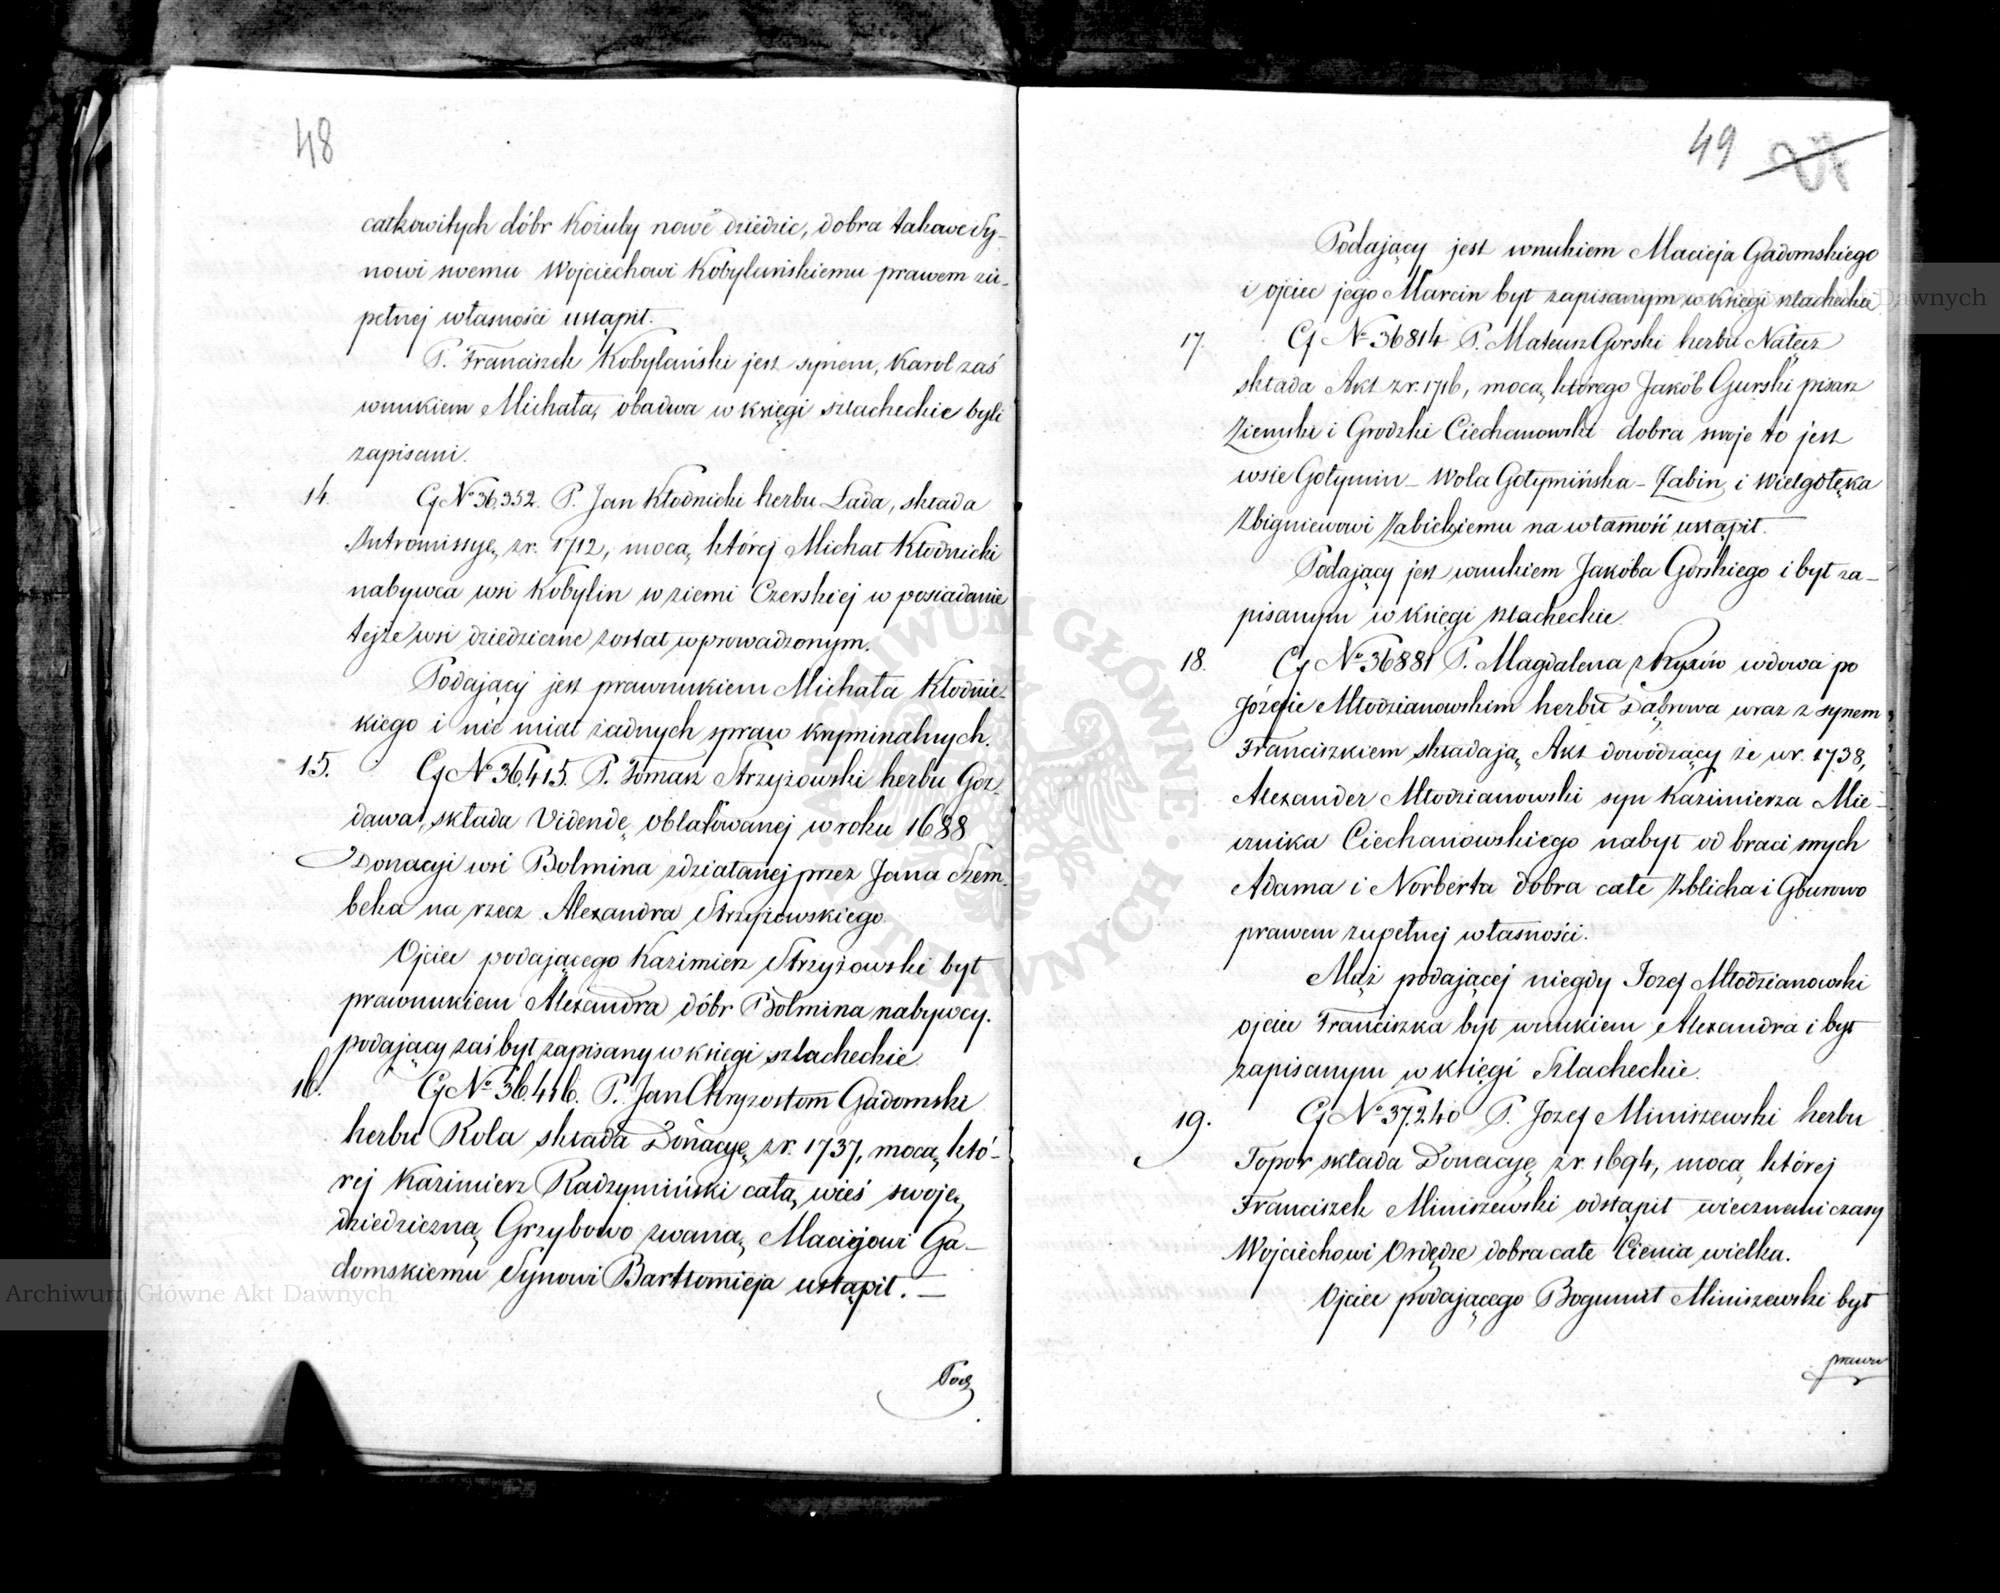 48
całkowitych dóbr Kożuby nowe dziedzic, dobra takowe Sy-
nowi swemu Wojciechowi Kobylańskiemu prawem zu-
pełnej własności ustąpił.
P. Franciszek Kobylański jest synem, Karol zaś
wnukiem Michała, obadwa w księgi szlacheckie byli
zapisani.
14. Cf No 36,352. P. Jan Kłodnicki herbu Łada, składa
Intromissyę zr. 1712, mocą której Michał Kłodnicki
nabywca wsi Kobylin w ziemi Czerskiej w posiadanie
tejże wsi dziedziczne został wprowadzonym.
Podający jest prawnukiem Michała Kłodnic-
kiego i nie miał żadnych spraw kryminalnych.
15. Cf No 36.415. P. Tomasz Strzyżowski herbu Goz-
dawa, składa Videndę oblatowanej w roku 1688
Donacyi wsi Bolmina zdziałanej przez Jana Szem-
beka na rzecz Alexandra Strzyżowskiego.
Ojciec podającego Kazimierz Strzyżowski był
prawnukiem Alexandra dóbr Bolmina nabywcy.
podający zaś był zapisany w księgi szlacheckie.
16. Cf No 36.416. P. Jan Chryzostom Gadomski
herbu Rola składa Donacyę zr. 1737, mocą któ-
rej Kazimierz Radzymiński całą wieś swoję
dziedziczną Grzybowo zwaną Maciejowi Ga-
domskiemu Synowi Bartłomieja ustąpił. —
Pod
49
Podający jest wnukiem Macieja Gadomskiego
i ojciec jego Marcin był zapisanym w księgi szlacheckie
17. Cf No 36814 P. Mateusz Gorski herbu Nałęcz
składa Akt zr. 1716, mocą którego Jakób Gurski pisarz
Ziemski i Grodzki Ciechanowski dobra swoje to jest
wsie Gołymin – Wola Gołymińska – Żabin i Wielgołęka
Zbigniewowi Żabickiemu na własność ustąpił.
Podający jest wnukiem Jakóba Górskiego i był za-
pisanym w księgi szlacheckie.
18. Cf No 36881 P. Magdalena z Ryxów wdowa po
Józefie Młodzianowskim herbu Dąbrowa wraz z synem
Franciszkiem składają Akt dowodzący że wr. 1738,
Alexander Młodzianowski syn Kazimierza Mie-
cznika Ciechanowskiego nabył od braci swych
Adama i Norberta dobra całe Żblicha i Gburowo
prawem zupełnej własności.
Mąż podającej niegdy Jozef Młodzianowski
ojciec Franciszka był wnukiem Alexandra i był
zapisanym w księgi Szlacheckie.
19. Cf No 37.240 P. Jozef Miniszewski herbu
Topor składa Donacyę zr. 1694, mocą której
Franciszek Miniszewski odstąpił wiecznemi czasy
Wojciechowi Ordędze dobra całe Cienia wielka.
Ojciec podającego Bogumił Miniszewski był
prawn
Archiwum Główne Akt Dawnych
ARCHIWUM GŁÓWNE AKT DAWNYCH